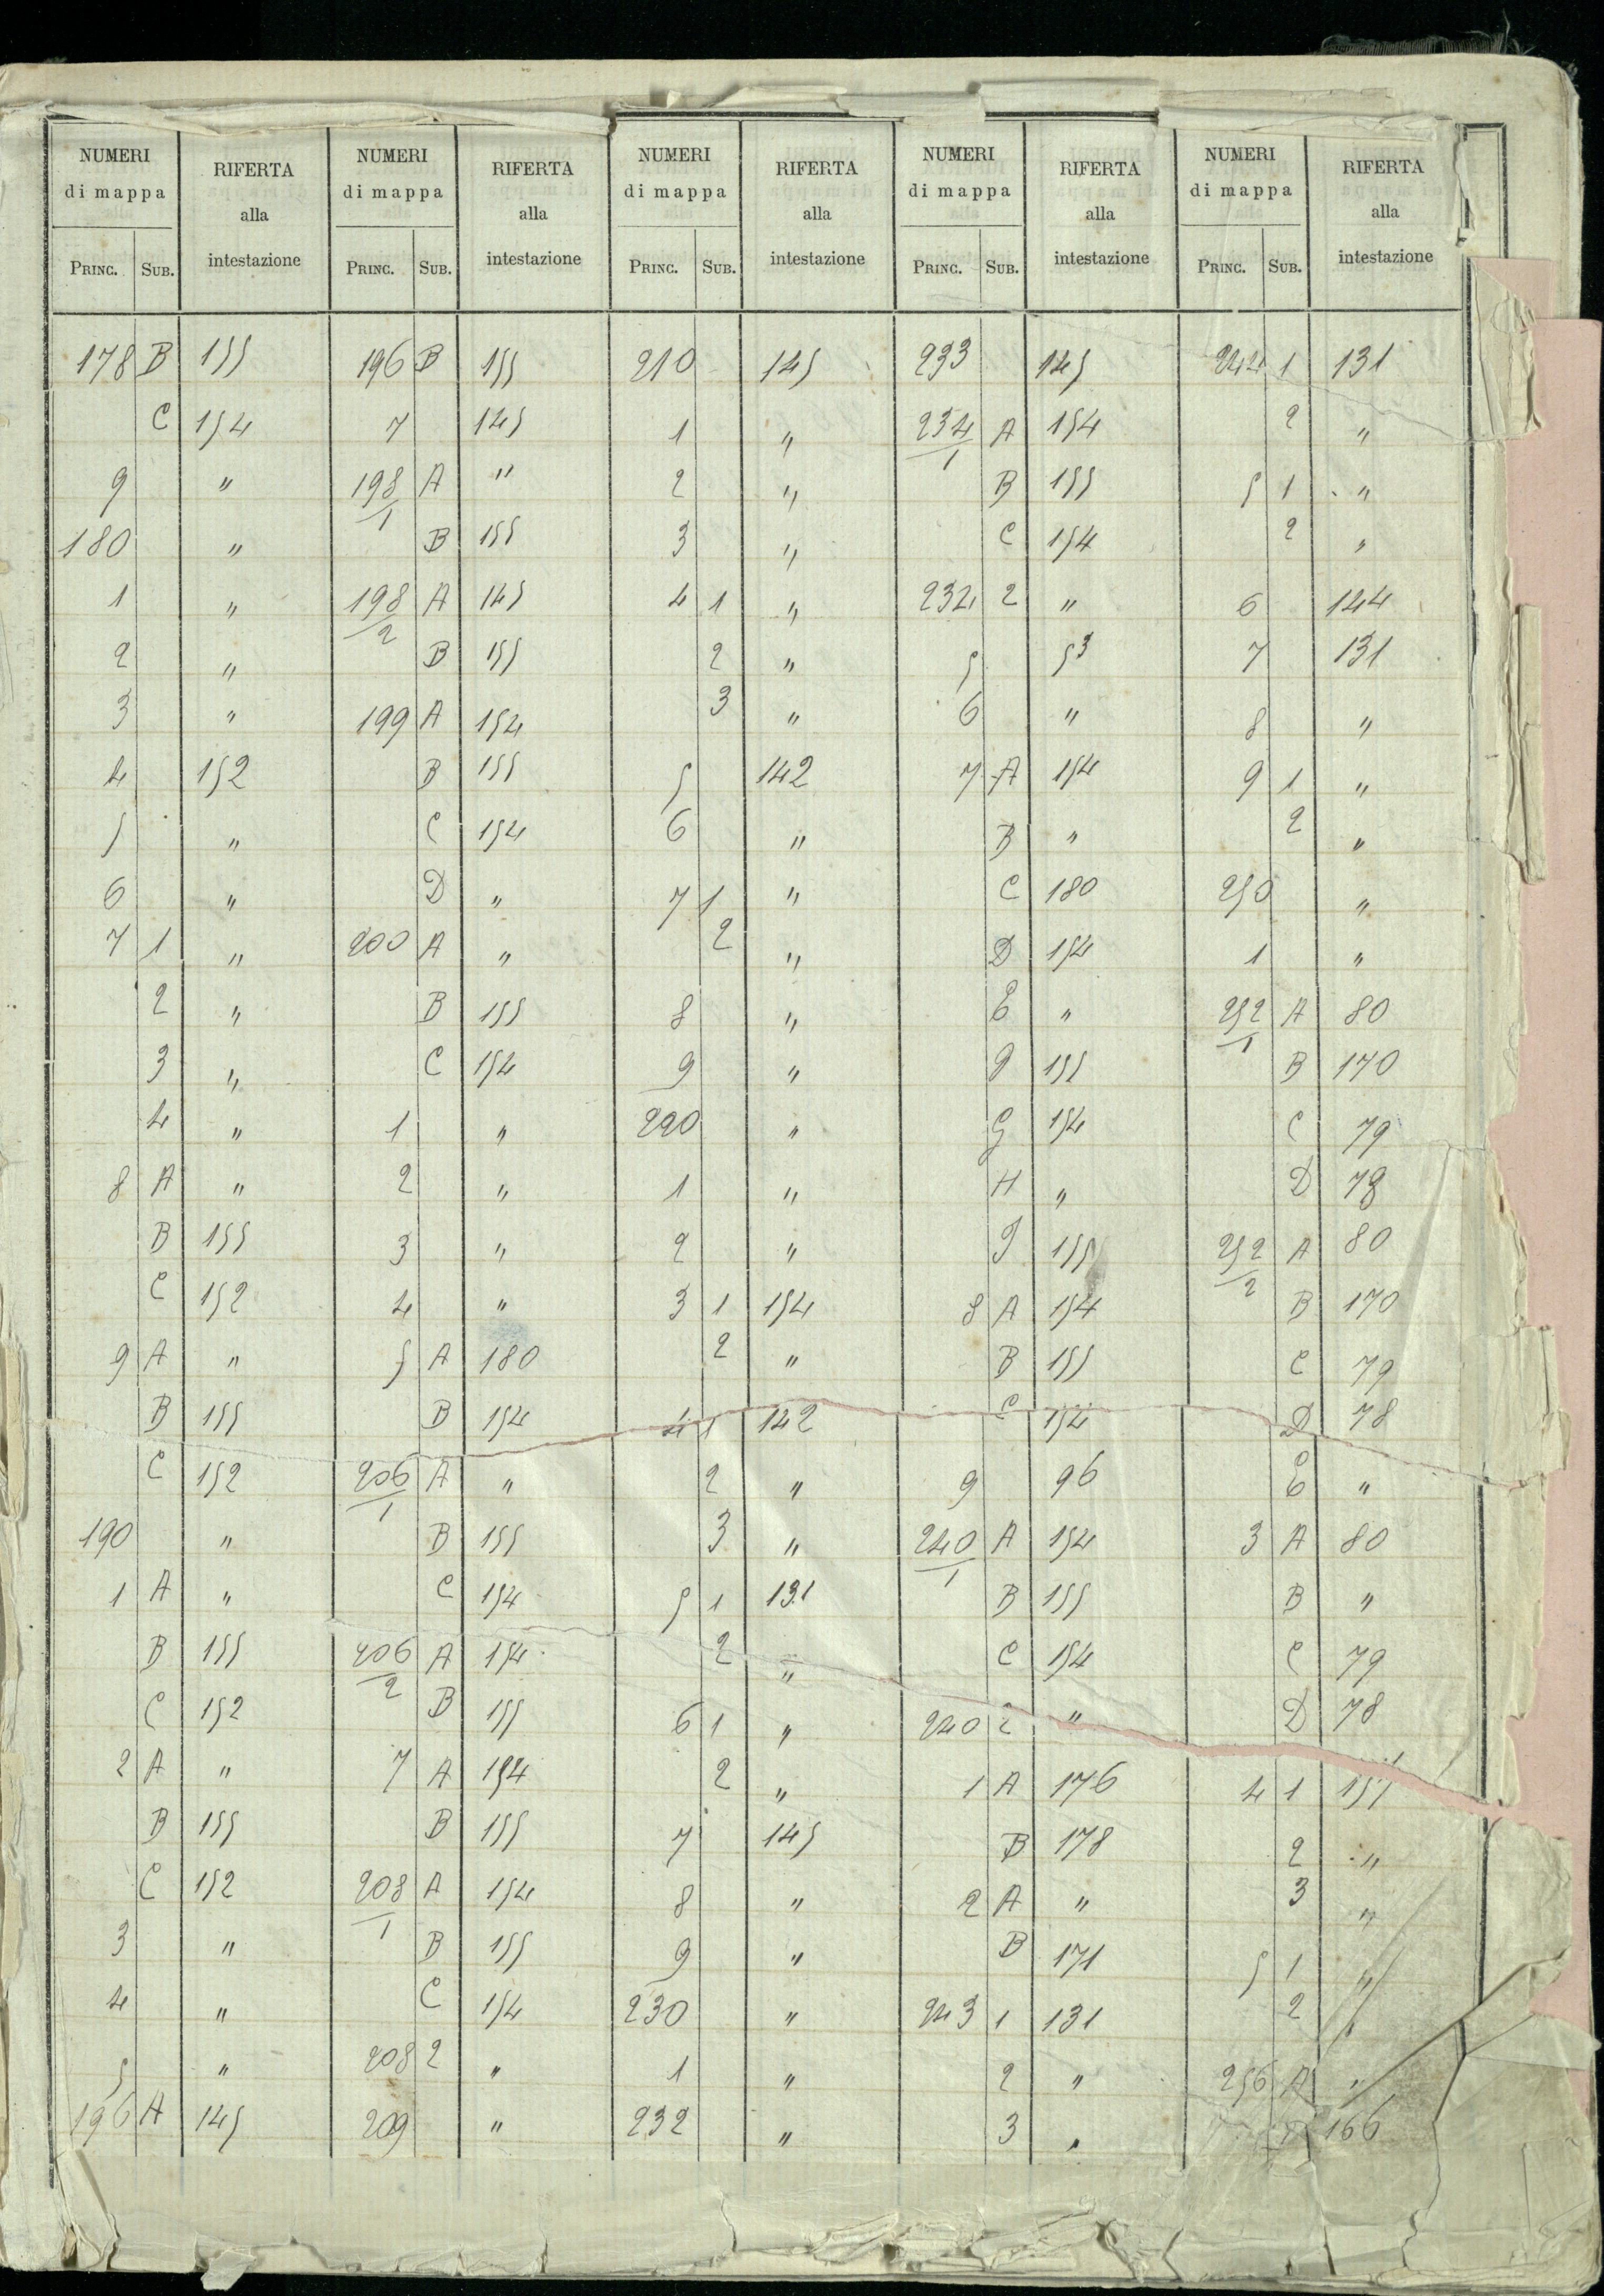 NUMERI
di mappa
RIFERTA
alla
intestazione
PRINC. SUB.
178 B 155
C 154
9 "
180 "
1 "
2 "
3 "
4 152
5 "
6 "
7 1 "
2 "
3 "
4 "
8 A "
B 155
C 152
9 A "
B 155
C 152
190 "
1 A "
B 155
C 152
2 A "
B 155
C 152
3 "
4 "
5 "
196 A 145
NUMERI
di mappa
RIFERTA
alla
intestazione
PRINC. SUB.
196 B 155
7 145
198/1 A "
B 155
198/2 A 145
B 155
199 A 154
B 155
C 154
D "
200 A "
B 155
C 154
1 "
2 "
3 "
4 "
5 A 180
B 154
206/1 A "
B 155
C 154
206/2 A 154
B 155
7 A 154
B 155
208/1 A 154
B 155
C 154
208 2 "
209 "
NUMERI
di mappa
RIFERTA
alla
intestazione
PRINC. SUB.
210 145
1 "
2 "
3 "
4 1 "
2 "
3 "
5 142
6 "
7 1 "
2 "
8 "
9 "
220 "
1 "
2 "
3 1 154
2 "
4 1 142
2 "
3 "
5 1 131
2 "
6 1 "
2 "
7 145
8 "
9 "
230 "
1 "
232 "
NUMERI
di mappa
RIFERTA
alla
intestazione
PRINC. SUB.
233 145
234/1 A 154
B 155
C 154
234 2 "
5 53
6 "
7 A 154
B "
C 180
D 154
E "
F 155
G 154
H "
I 155
8 A 154
B 155
C 154
9 96
240/1 A 154
B 155
C 154
240 2 "
1 A 176
B 178
2 A "
B 171
243 1 131
2 "
3 "
NUMERI
di mappa
RIFERTA
alla
intestazione
PRINC. SUB.
244 1 131
2 "
5 1 "
2 "
6 144
7 131
8 "
9 1 "
2 "
250 "
1 "
252/1 A 80
B 170
C 79
D 78
252/2 A 80
B 170
C 79
D 78
E "
3 A 80
B "
C 79
D 78
4 1
2 "
3 "
5 1 "
2 "
256 A "
166